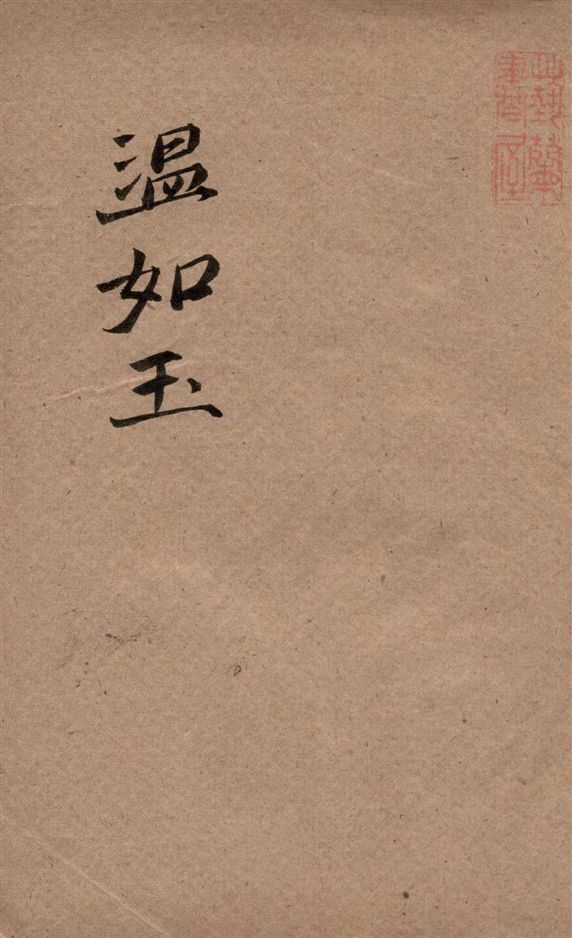 温如玉